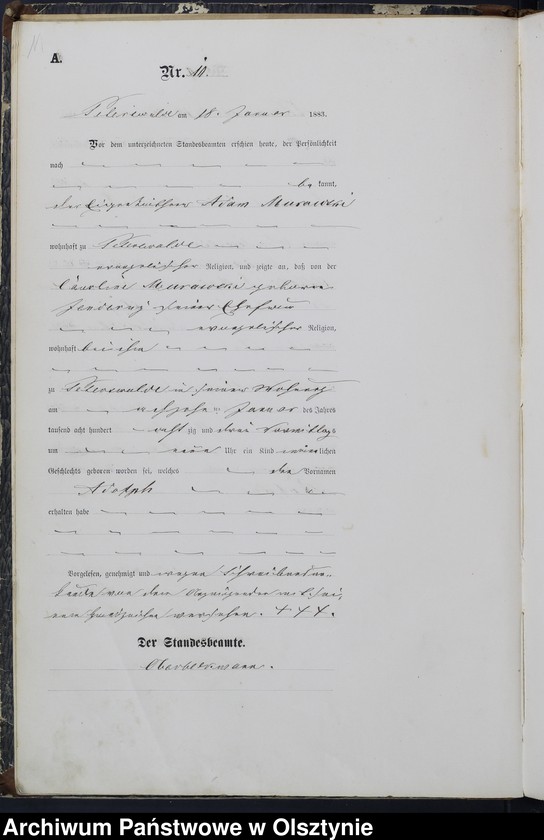 A.
Nr. 10.
Peterswalde am 18. Januar 1883.
Vor dem unterzeichneten Standesbeamten erschien heute, der Persönlichkeit
nach
be kannt,
der Adam Murawski
wohnhaft zu Peterswalde
evangelischer Religion, und zeigte an, daß von der
Caroline Murawski geborene
seiner Ehefrau
evangelischer Religion,
wohnhaft bei ihm
zu Peterswalde in seiner Wohnung
am achzehn ten Januar des Jahres
tausend acht hundert acht zig und drei Vormittags
um neun Uhr ein Kind männlichen
Geschlechts geboren worden sei, welches den Vornamen
Adolph
erhalten habe
Vorgelesen, genehmigt und wegen Schreibensun-
kunde von dem Anzeigenden mit sei-
nem Handzeichen versehen. + + +.
Der Standesbeamte.
Archiwum Państwowe w Olsztynie